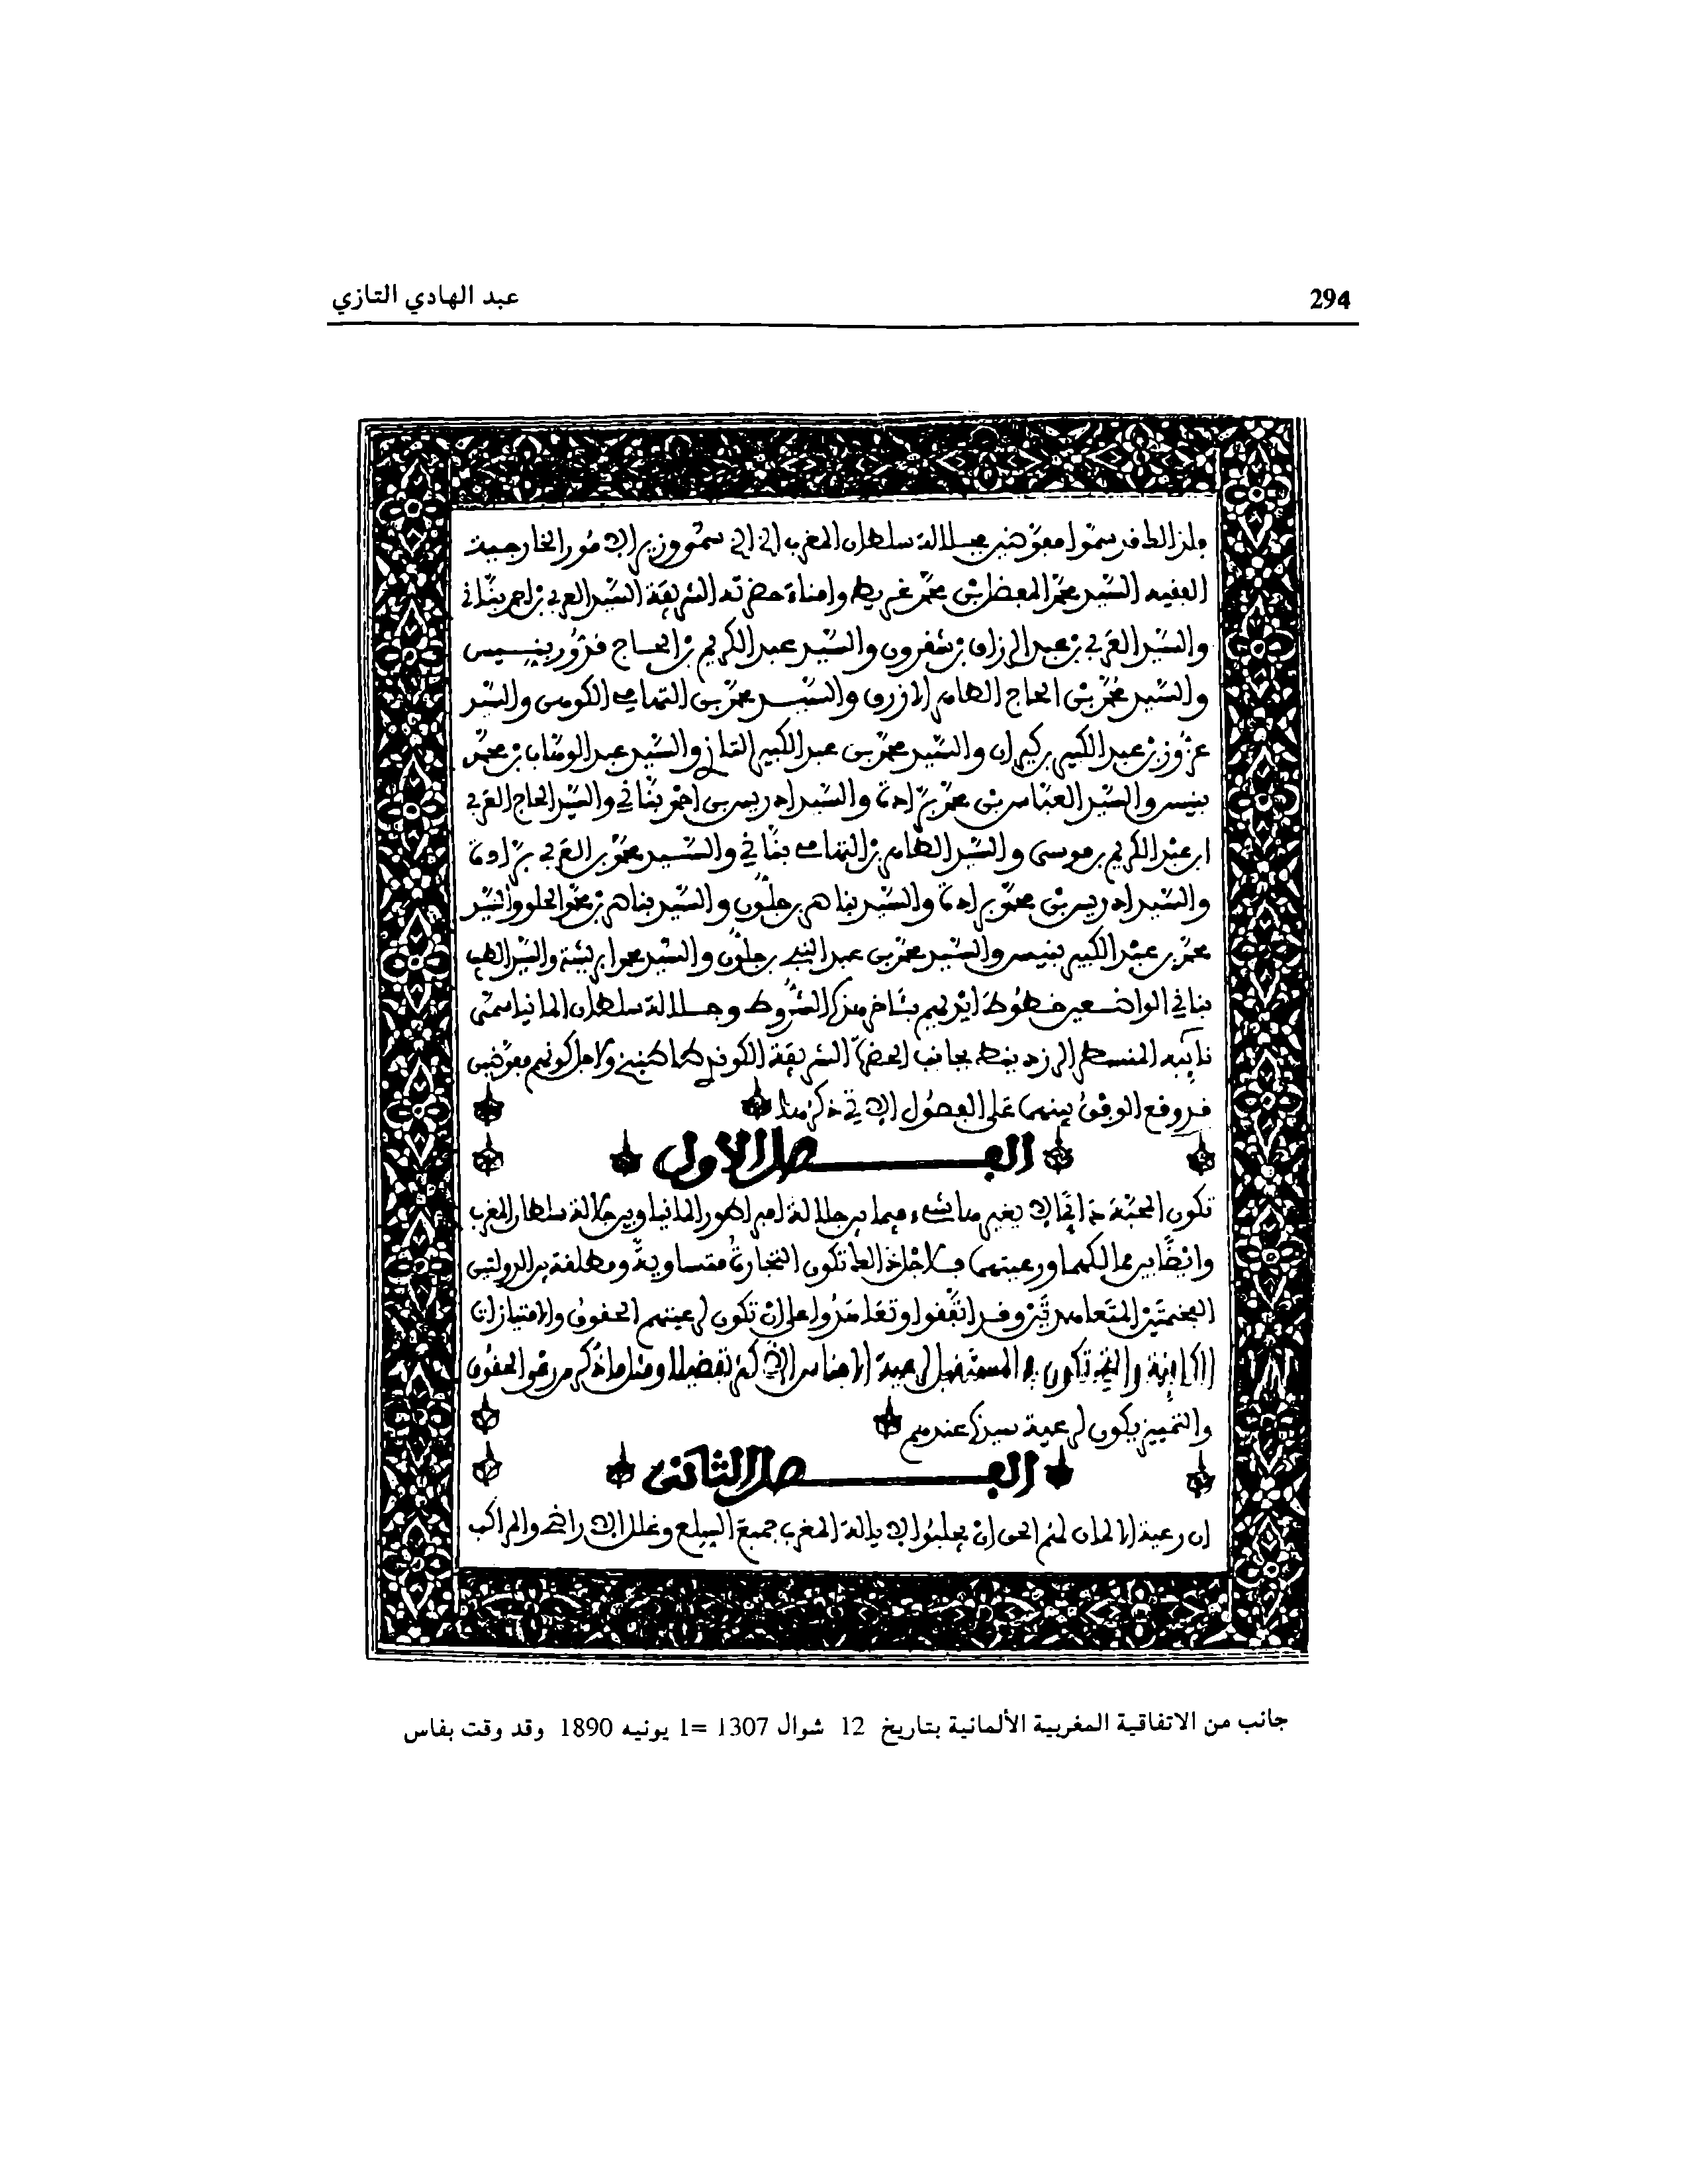 294
عبد الهادي التازي
فلذلك قد سموا مفوضين جلالة سلطان المغرب سمو وزير الأمور الخارجية
الفقيه السيد محمد المفضل بن محمد غريط وأمناء حضرته الشريفة السيد العربي بن احمد بناني
والسيد العربي بن عبد الرزاق بن شقرون والسيد عبد الكريم بن الحاج بنيس
والسيد محمد بن الحاج الطاهر الازرق والسيد محمد بن التهامي والسيد
عزوز بن عبد الكبير بركيران والسيد محمد بن عبد الكبير التازي والسيد عبد الوهاب بن محمد
بنيس والسيد العباس بن محمد برادة والسيد ادريس بن احمد بناني والسيد الحاج العربي
ابن عبد الكريم بن موسى والسيد الطاهر بن التهامي بناني والسيد محمد بن العربي برادة
والسيد ادريس بن محمد برادة والسيد بناصر بن جلون والسيد بناصر بن محمد الحلو والسيد
محمد بن عبد الكبير بنيس والسيد محمد بن عبد النبي بن جلون والسيد والسيد الطيب
بناني الواضعين خطوط ايديهم بآخر هذه الشروط وجلالة سلطان المانيا سمى
نايبه المنسطر الرزدينط بجانب الحضرة الشريفة الكونط طاطنبخ ولاجل كونهم مفوضين
قد وقع الوفق بينهما على الفصول الآتي ذكرها
الفصل الاول
تكون المحبة دائما لا يغيرها شيء فيما بين جلالة امبراطور المانيا وبين جلالة سلطان المغرب
وايضا بين ممالكهما ورعيتهما فلاجل ذالك تكون التجارة متساوية ومطلقة بين الدولتين
الفخمتين المتعاهدتين وقد اتفقوا وتعاهدوا على ان تكون لرعيتهم الحقوق والامتيازات
الكاينة والتي تكون في المستقبل لرعية الاجناس الاكثر تفضيلا ومثل ما ذكر من الحقوق
والتمييز يكون لرعية عندهم
الفصل الثاني
ان رعية الالمان لهم الحق ان يجلبوا لايالة المغرب جميع السلع وغلل الاراضي والمراكب
جانب من الاتفاقية المغربية الألمانية بتاريخ 12 شوال 1307 =1 يونيه 1890 وقد وقت بفاس